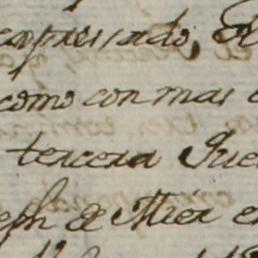 expressado,
como con mas
tercera
eph de Mier e